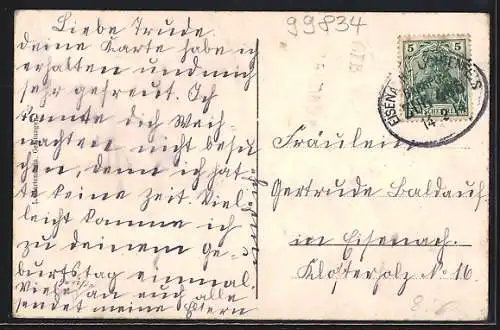 99834
Liebe Trude.
deine Karte habe ich
erhalten und mich
sehr gefreut. Ich
konnte dich Weih-
nachten nicht besu-
chen, denn ich hat-
te keine Zeit. Viel
leicht komme ich
zu deinem Ge-
burtstag einmal.
Viele Grüße an euch alle
sendet meine Eltern
5 5
EISENA
14
Fräulein
Gertrude Baldauf
in Eisenach.
Klosterholz No 16